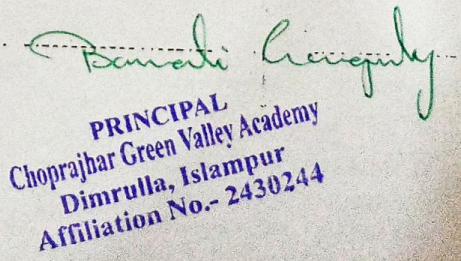 Banati Ganguly
PRINCIPAL
Choprajhar Green Valley Academy
Dimrulla, Islampur
Affiliation No.- 2430244